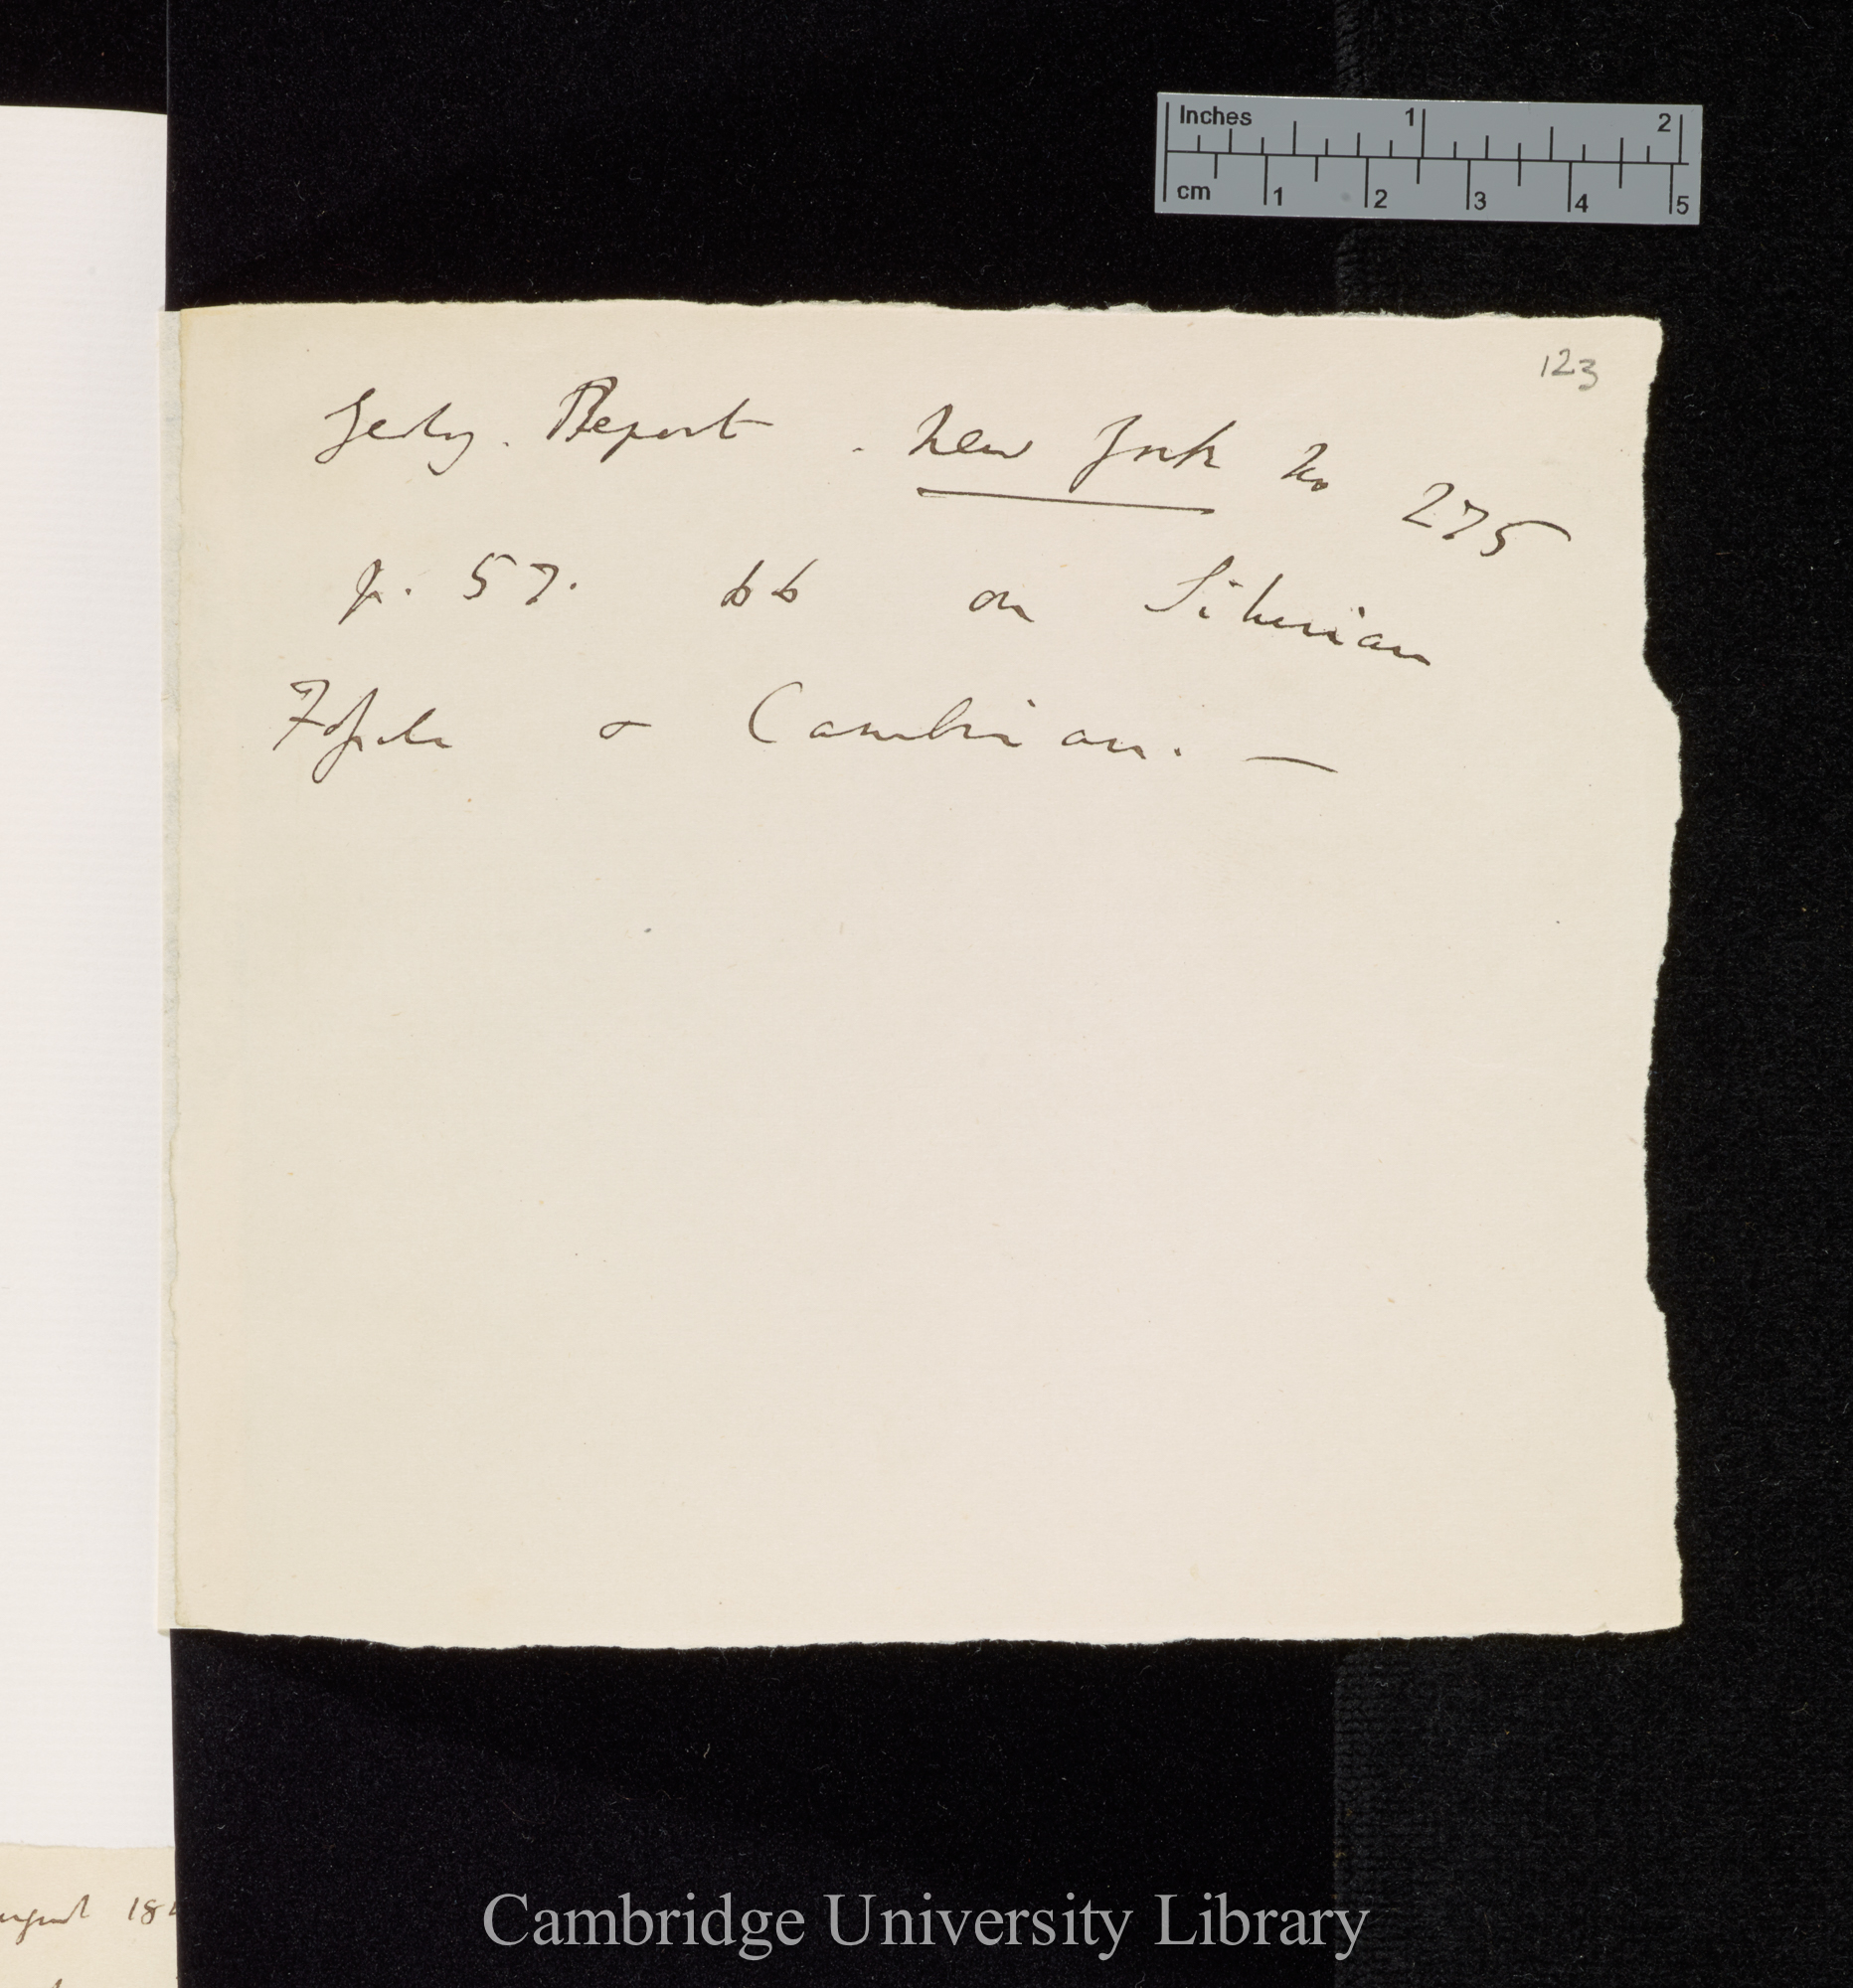 Inches 1 2
cm 1 2 3 4 5
123
Geolog. Report . New York No 275
p. 57. 66 on Silurian
Fossils & Cambrian. —
August 18
Cambridge University Library